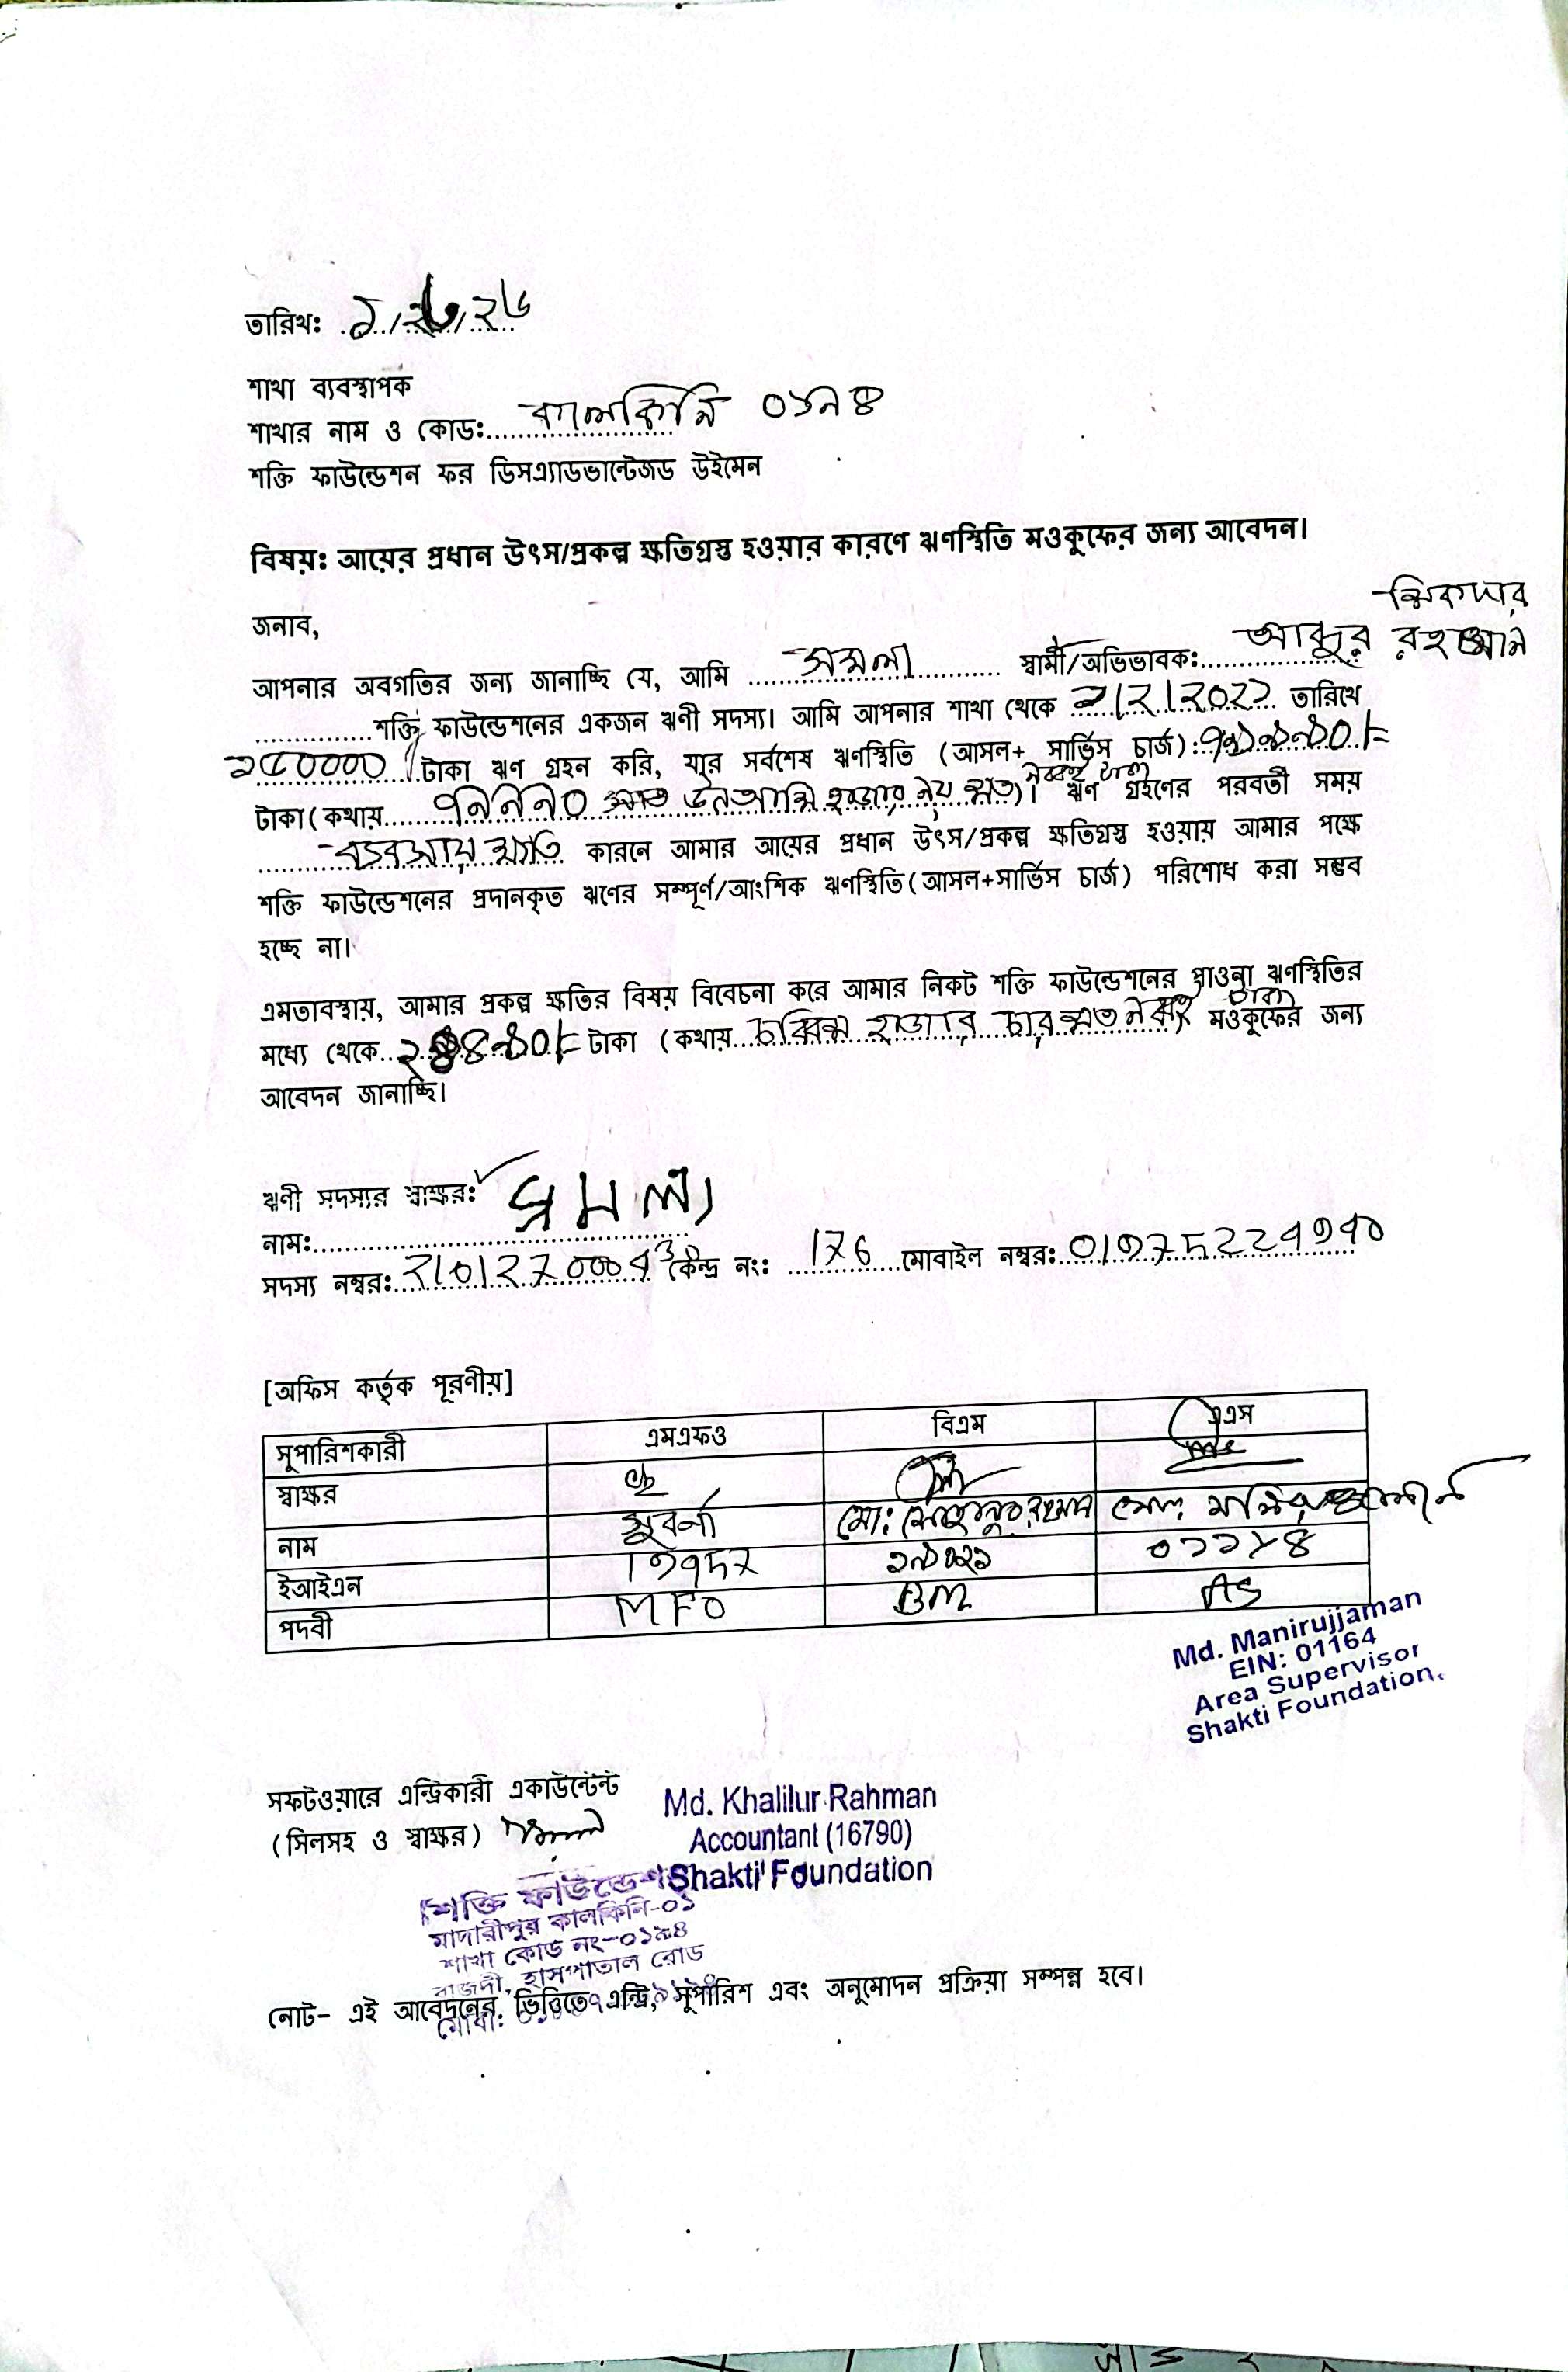 তারিখঃ
শাখা ব্যবস্থাপক
শাখার নাম ও কোডঃ কালকিনি ০১৯৪
শক্তি ফাউন্ডেশন ফর ডিসএ্যাডভান্টেজড উইমেন
বিষয়ঃ আয়ের প্রধান উৎস/প্রকল্প ক্ষতিগ্রস্ত হওয়ার কারণে ঋণস্থিতি মওকুফের জন্য আবেদন।
জনাব,
আপনার অবগতির জন্য জানাচ্ছি যে, আমি স্বামী/অভিভাবকঃ রহমান
শক্তি ফাউন্ডেশনের একজন ঋণী সদস্য। আমি আপনার শাখা থেকে তারিখে
টাকা ঋণ গ্রহন করি, যার সর্বশেষ ঋণস্থিতি (আসল+ সার্ভিস চার্জ):
টাকা (কথায় হাজার নয় শত নব্বই টাকা)। ঋণ গ্রহণের পরবর্তী সময়
ব্যবসায় ক্ষতি কারনে আমার আয়ের প্রধান উৎস/প্রকল্প ক্ষতিগ্রস্ত হওয়ায় আমার পক্ষে
শক্তি ফাউন্ডেশনের প্রদানকৃত ঋণের সম্পূর্ণ/আংশিক ঋণস্থিতি(আসল+সার্ভিস চার্জ) পরিশোধ করা সম্ভব
হচ্ছে না।
এমতাবস্থায়, আমার প্রকল্প ক্ষতির বিষয় বিবেচনা করে আমার নিকট শক্তি ফাউন্ডেশনের প্রাওনা ঋণস্থিতির
মধ্যে থেকে ২৪৪৯০/= টাকা (কথায় চব্বিশ হাজার চার শত নব্বই টাকা মওকুফের জন্য
আবেদন জানাচ্ছি।
ঋণী সদস্যর স্বাক্ষরঃ
নামঃ
সদস্য নম্বরঃ কেন্দ্র নংঃ 176 মোবাইল নম্বরঃ
[অফিস কর্তৃক পূরণীয়]
সুপারিশকারী এমএফও বিএম এএস
স্বাক্ষর
নাম সুবর্না মোঃ
ইআইএন
পদবী MFO BM AS
Md. Manirujjaman
EIN: 01164
Area Supervisor
Shakti Foundation.
সফটওয়ারে এন্ট্রিকারী একাউন্টেন্ট
(সিলসহ ও স্বাক্ষর)
Md. Khalilur Rahman
Accountant (16790)
Shakti Foundation
শক্তি ফাউন্ডেশন
মাদারীপুর কালকিনি-০১
শাখা কোড নং-০১৯৪
হাসপাতাল রোড
নোট- এই আবেদনের ভিত্তিতে এন্ট্রি, সুপারিশ এবং অনুমোদন প্রক্রিয়া সম্পন্ন হবে।